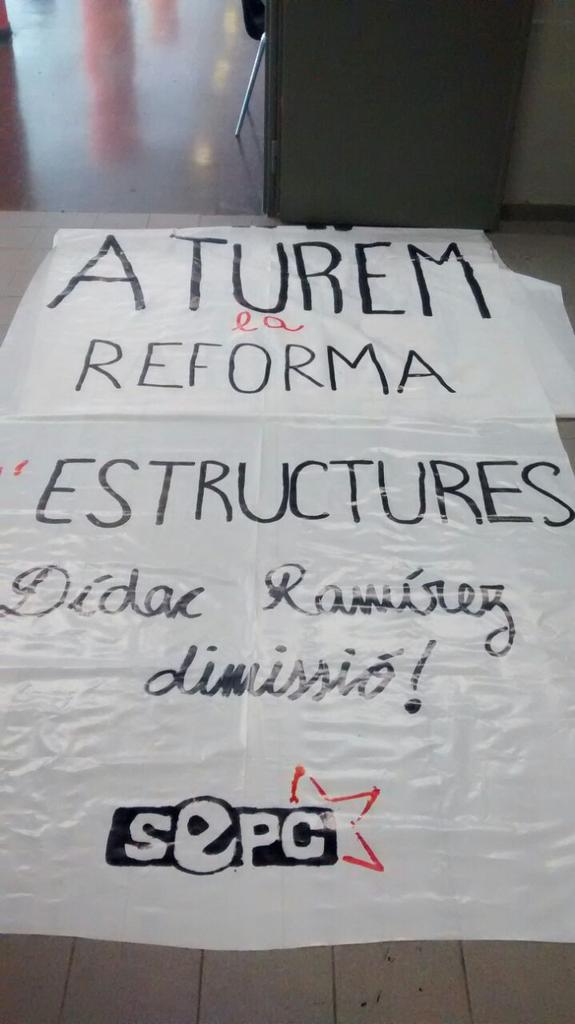 ATUREM
la
REFORMA
ESTRUCTURES
Dídac Ramírez
dimissió!
SEPC